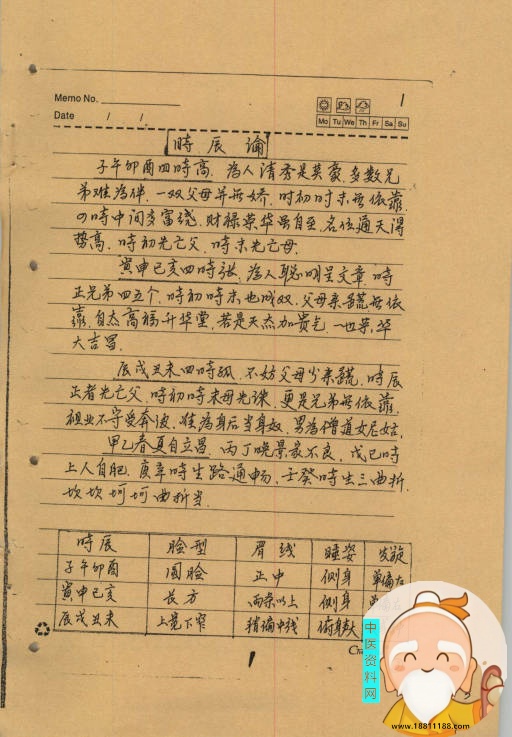 Memo No.
Date / /
1
Mo Tu We Th Fr Sa Su
時辰論
子午卯酉四時高,為人清秀是英豪,多数兄
弟难為伴,一双父母并無娇,时初时末無依靠,
の時中间多富绕,财禄荣华虽自至,名位通天得
势高,時初先亡父,時末先亡母.
寅申巳亥四時张,為人聪明呈文章,時
正兄弟四五个,時初時末也成双,父母亲疏無依
靠,自杰高福升华堂,若是天杰加贵乞,一世荣华
大吉昌.
辰戌丑未四時孤,不妨父母少亲疏,時辰
正者先亡父,時初時末母先诛,更是兄弟無依靠,
祖业不守受奔波,难為身后当身奴,男為僧道女尼姑.
甲乙春夏自立昌,丙丁晚景最不良,戊己時
上人自肥,庚辛時生路通畅,壬癸時生三曲折,
坎坎坷坷曲折当.
時辰 脸型 唇线 睡姿 发旋
子午卯酉 圆脸 正中 侧身 单偏左
寅申巳亥 长方 两条以上 侧身
辰戌丑未 上宽下窄 稍偏中线 俯身
1
中医资料网
www.18811188.com